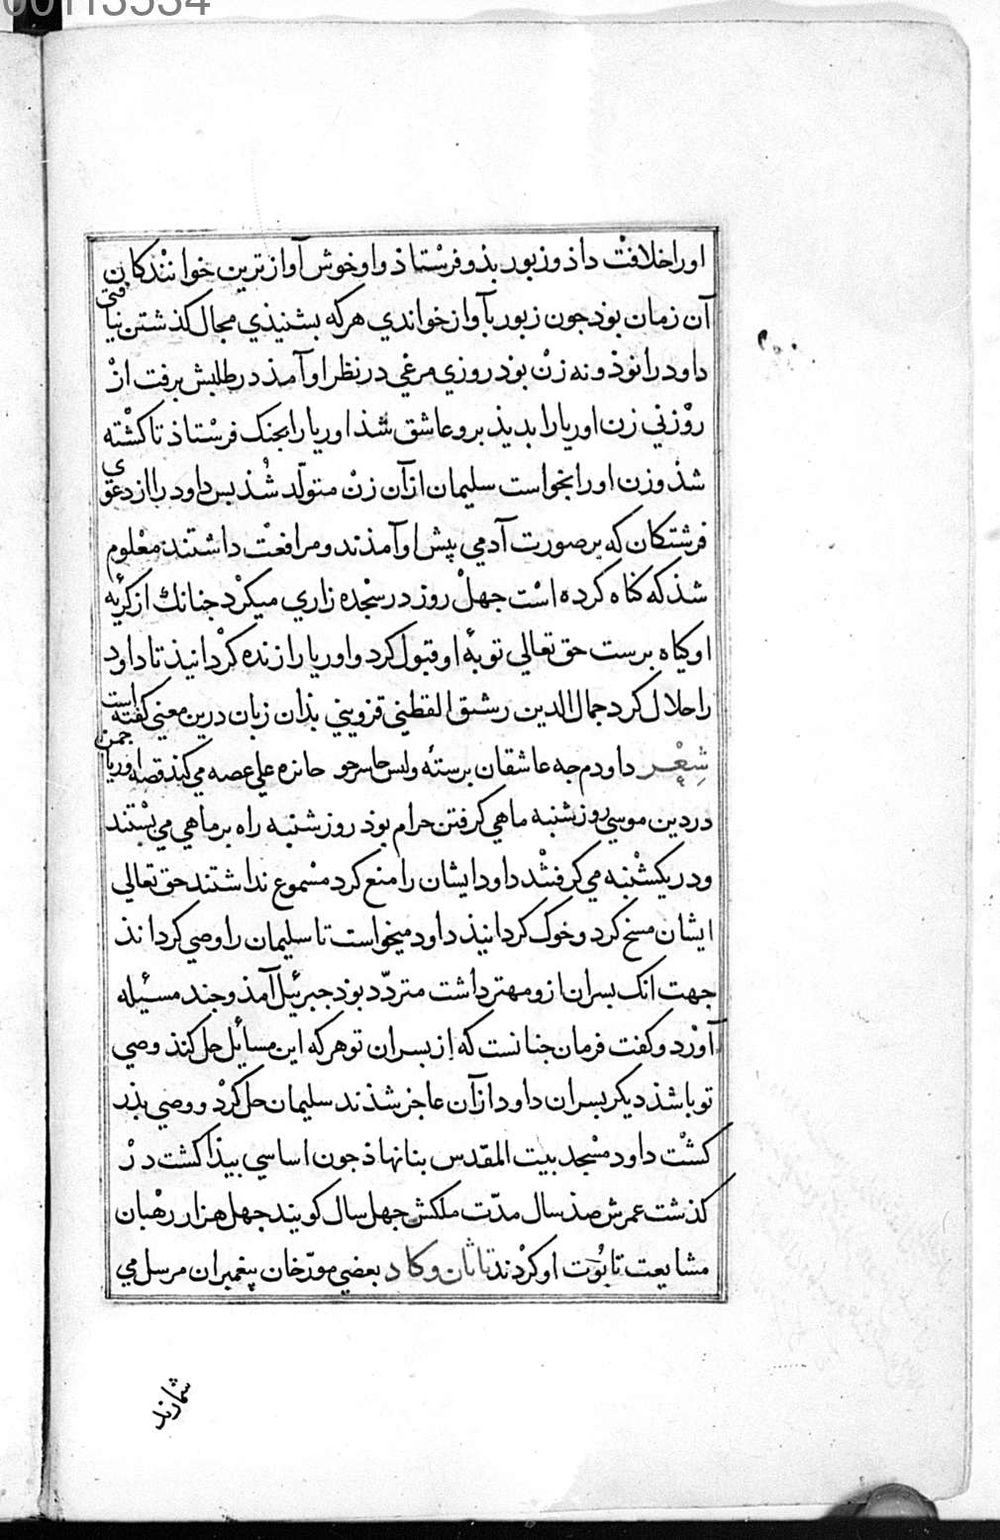 00113534
اورا خلافت داذ و زبور بذو فرستاذ و او خوش آوازترین خوانندکان
آن زمان بوذ جون زبور بآواز خواندي هرکه بشنیذي مجال کذشتن نیافتی
داود را نوذ و نه زن بوذ روزي مرغي در نظر او آمذ در طلبش برفت از
روزني زن اوریا را بدیذ برو عاشق شذ اوریا را بجنک فرستاذ تا کشته
شذ و زن او را بخواست سلیمان از آن زن متولّد شُذ بس داود را از دعوی
فرشتکان که بر صورت آدمي پیش او آمذند و مرافعت داشتند معلوم
شذ که کناه کرده است جهل روز در سجده زاري میکرد جنانك از کریهٔ
او کیاه برست حق تعالي توبهٔ او قبول کرد و اوریا را زنده کردانیذ تا داود
را حلال کرد جمال الدین رستق القطني قزویني بذان زبان درین معني کفته است
شِعْر داودم جه عاشقان برسته ... حانره علي عصه مي کند قصه اوریا جمن
در دین موسي روز شنبه ماهي کرفتن حرام بوذ روز شنبه راه بر ماهي مي بستند
و در یکشنبه مي کرفتند داود ایشان را منع کرد مسموع نداشتند حق تعالي
ایشان مسخ کرد و خوک کردانیذ داود میخواست تا سلیمان را وصي کرداند
جهت انک بسران ازو مهتر داشت متردّد بوذ جبرئیل آمذ و جند مسئله
آورد و کفت فرمان جنانست که از بسران تو هرکه این مسائل حل کنذ وصي
تو باشذ دیکر بسران داود از آن عاجز شذند سلیمان حل کرد و وصي بذر
کشت داود مسجد بیت المقدس بنا نهاذ جون اساسي بیذا کشت در
کذشت عمرش صذ سال مدّت ملکش جهل سال کویند جهل هزار رهبان
مشایعت تابوت او کردند تاثان و کاد بعضي مورّخان پیغمبران مرسل مي
شمارند